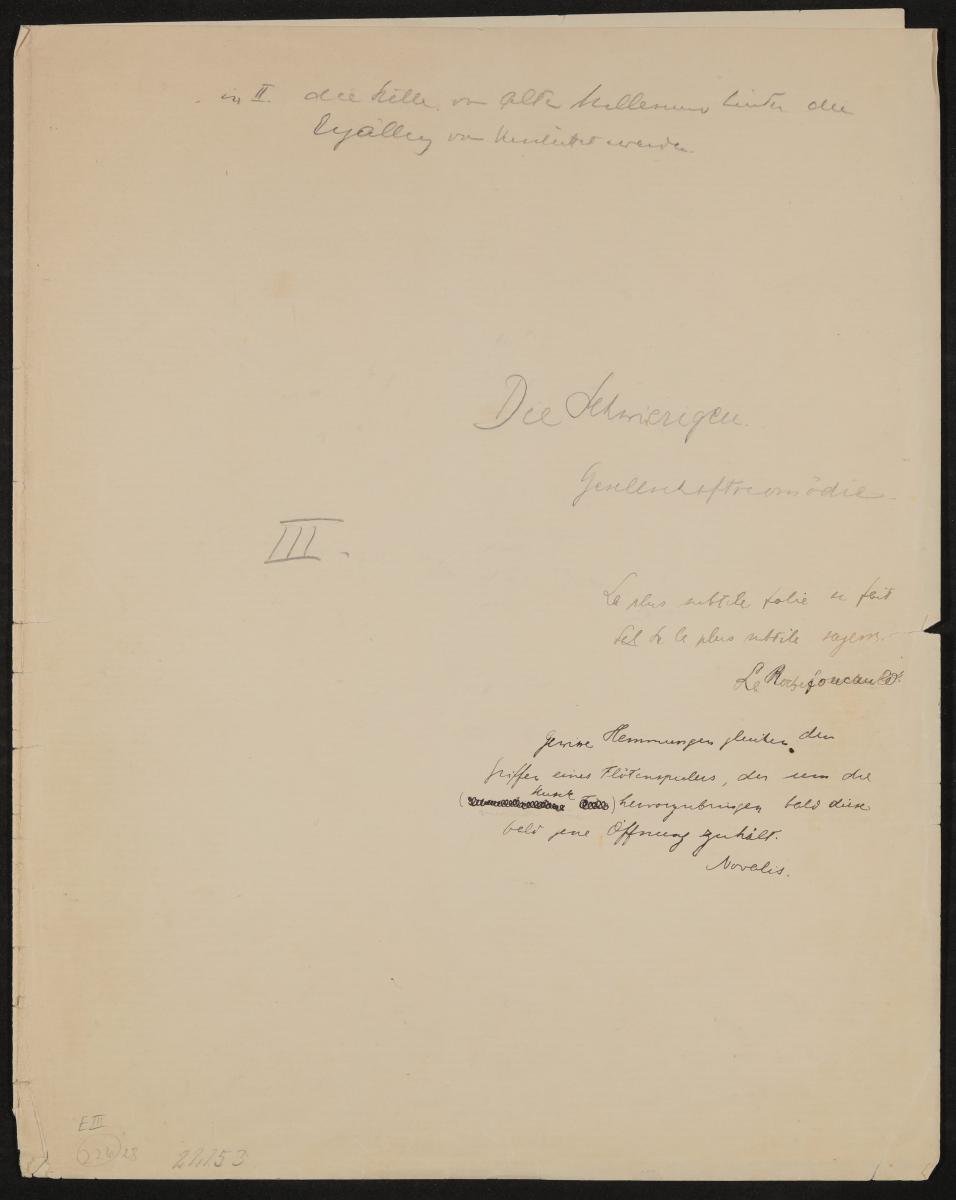 in II. die Stelle von Altenwyl hinter die
Erzählung von werden
Die Schwierigen.
Gesellschaftscomödie.
III.
La plus subtile folie se fait
de la plus subtile sagesse.
La Rochefoucauld.
Gewisse Hemmungen gleichen den
Griffen eines Flötenspielers, der um die
( Musik ) hervorzubringen bald diese
bald jene Öffnung zuhält.
Novalis.
E III
22453